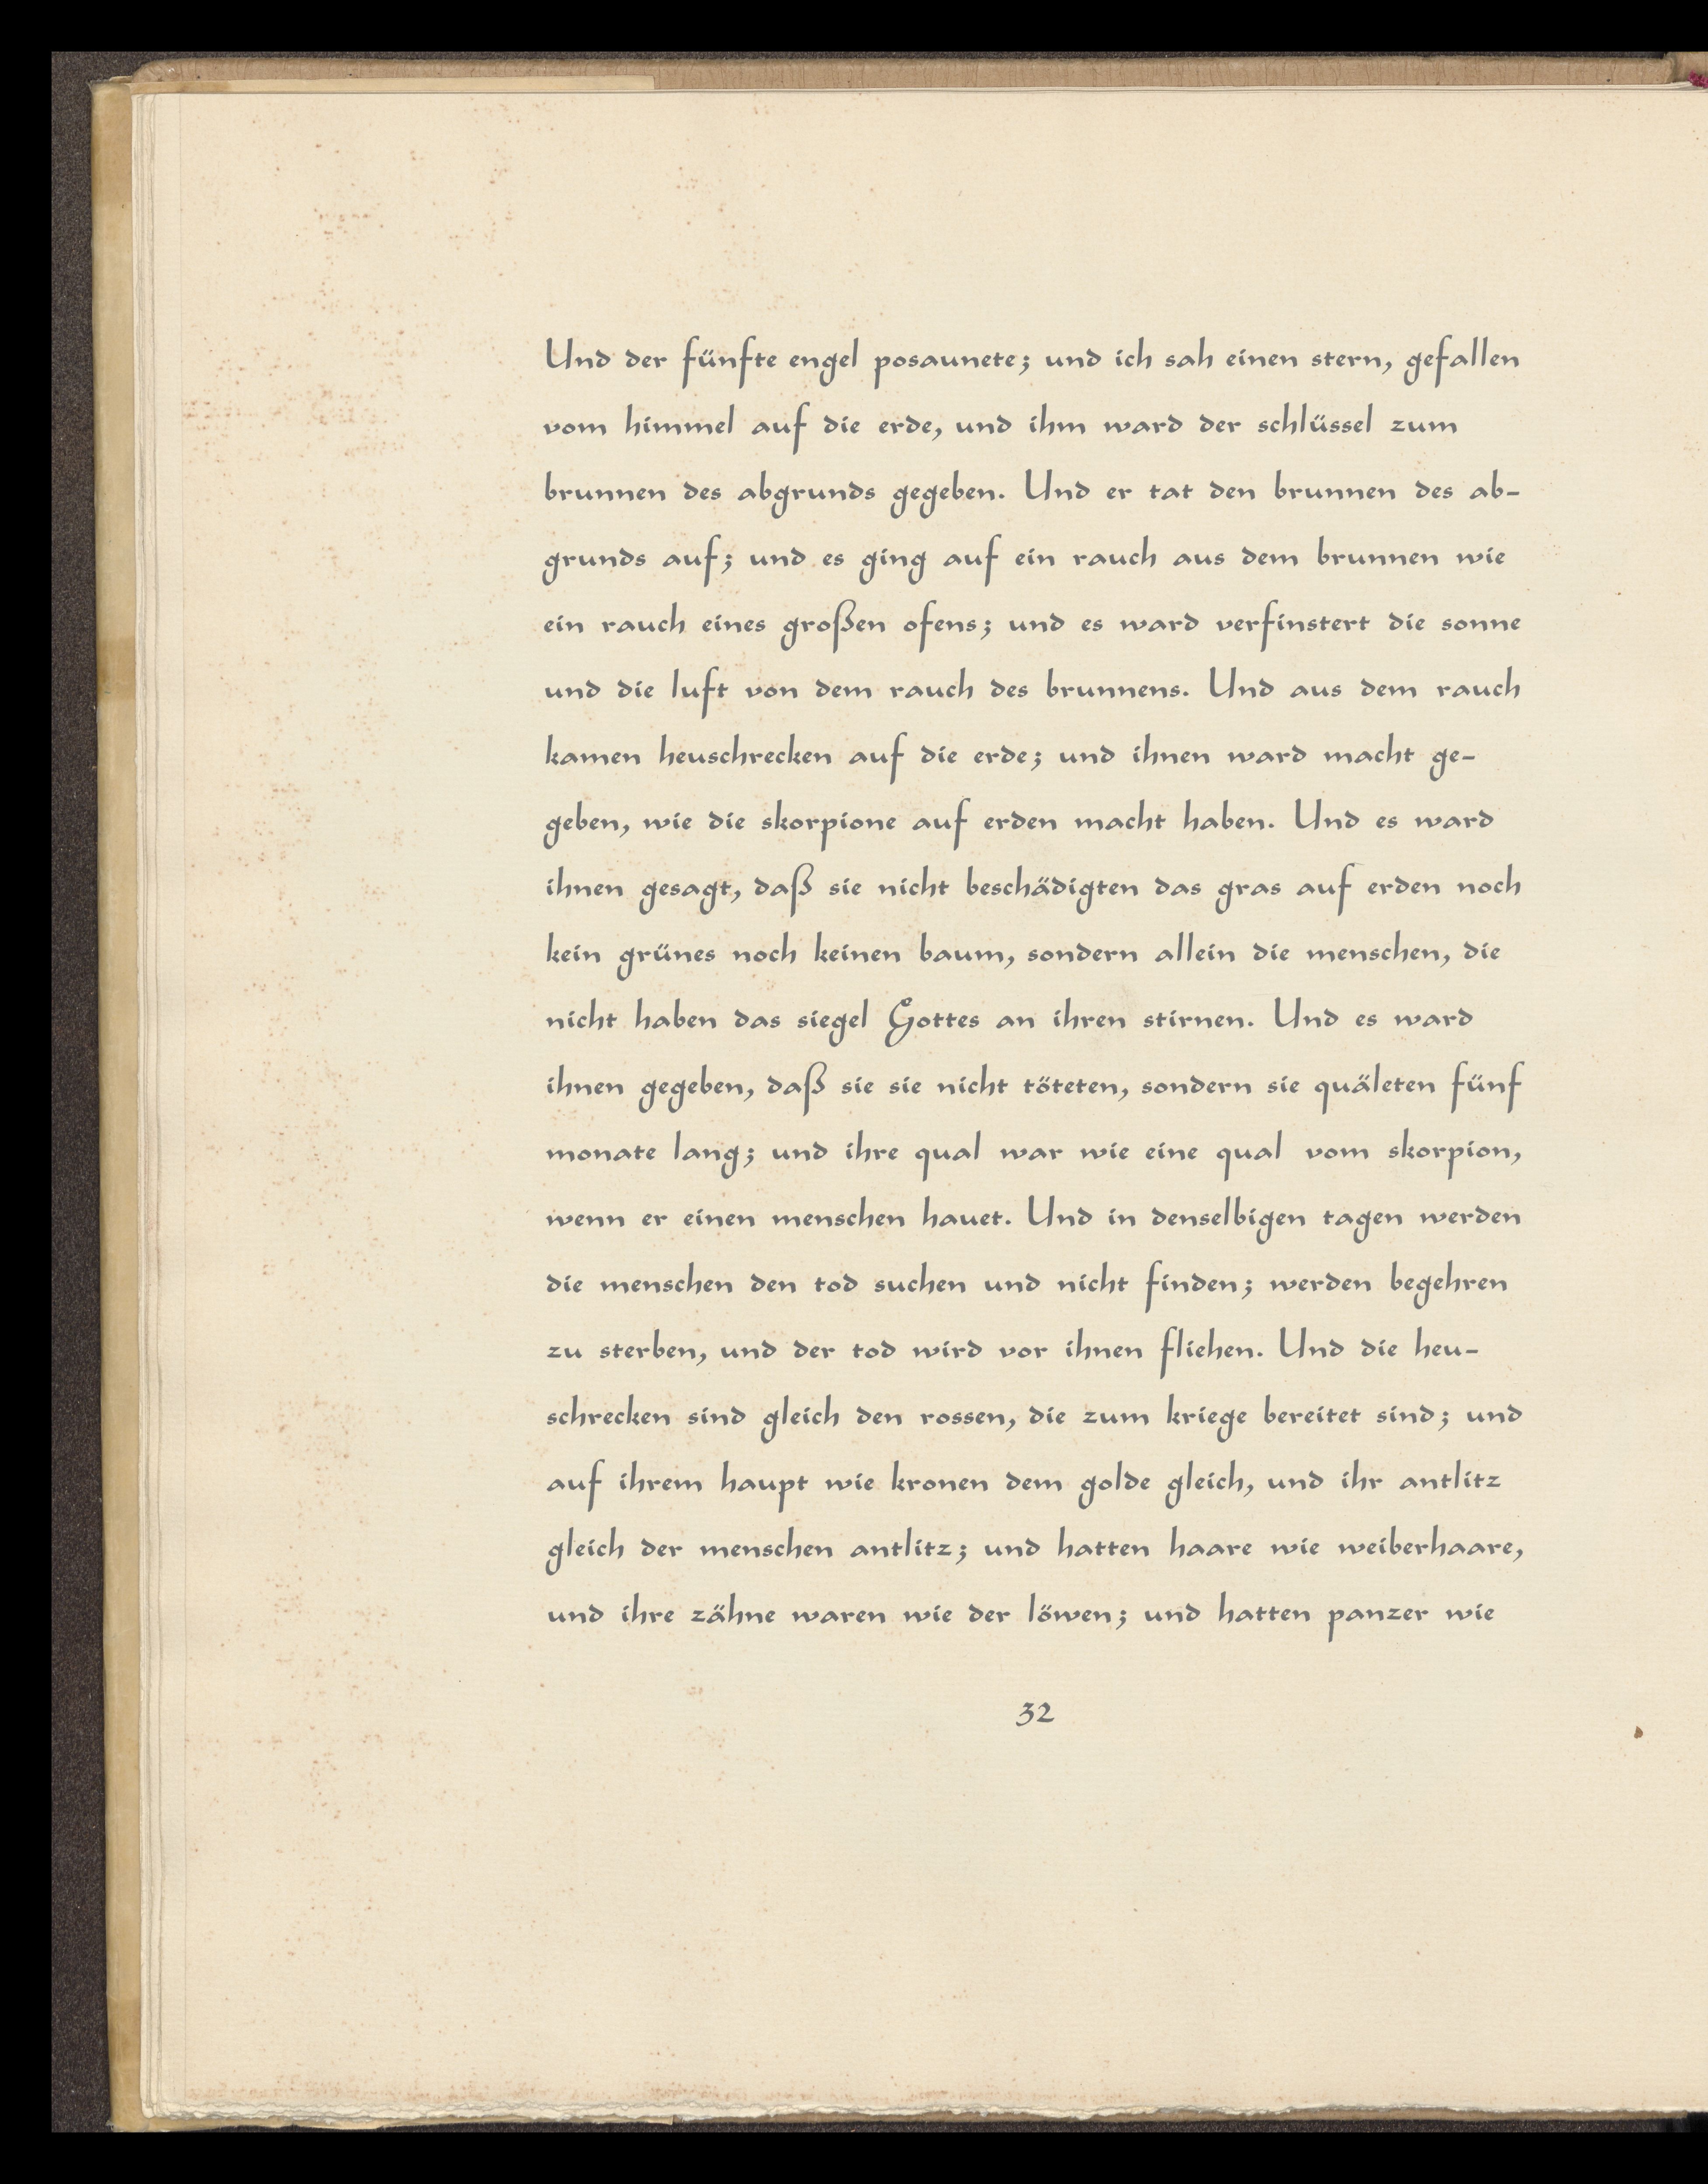 Und der fünfte engel posaunete; und ich sah einen stern, gefallen
vom himmel auf die erde, und ihm ward der schlüssel zum
brunnen des abgrunds gegeben. Und er tat den brunnen des ab-
grunds auf; und es ging auf ein rauch aus dem brunnen wie
ein rauch eines großen ofens; und es ward verfinstert die sonne
und die luft von dem rauch des brunnens. Und aus dem rauch
kamen heuschrecken auf die erde; und ihnen ward macht ge-
geben, wie die skorpione auf erden macht haben. Und es ward
ihnen gesagt, daß sie nicht beschädigten das gras auf erden noch
kein grünes noch keinen baum, sondern allein die menschen, die
nicht haben das siegel Gottes an ihren stirnen. Und es ward
ihnen gegeben, daß sie sie nicht töteten, sondern sie quäleten fünf
monate lang; und ihre qual war wie eine qual vom skorpion,
wenn er einen menschen hauet. Und in denselbigen tagen werden
die menschen den tod suchen und nicht finden; werden begehren
zu sterben, und der tod wird vor ihnen fliehen. Und die heu-
schrecken sind gleich den rossen, die zum kriege bereitet sind; und
auf ihrem haupt wie kronen dem golde gleich, und ihr antlitz
gleich der menschen antlitz; und hatten haare wie weiberhaare,
und ihre zähne waren wie der löwen; und hatten panzer wie
32